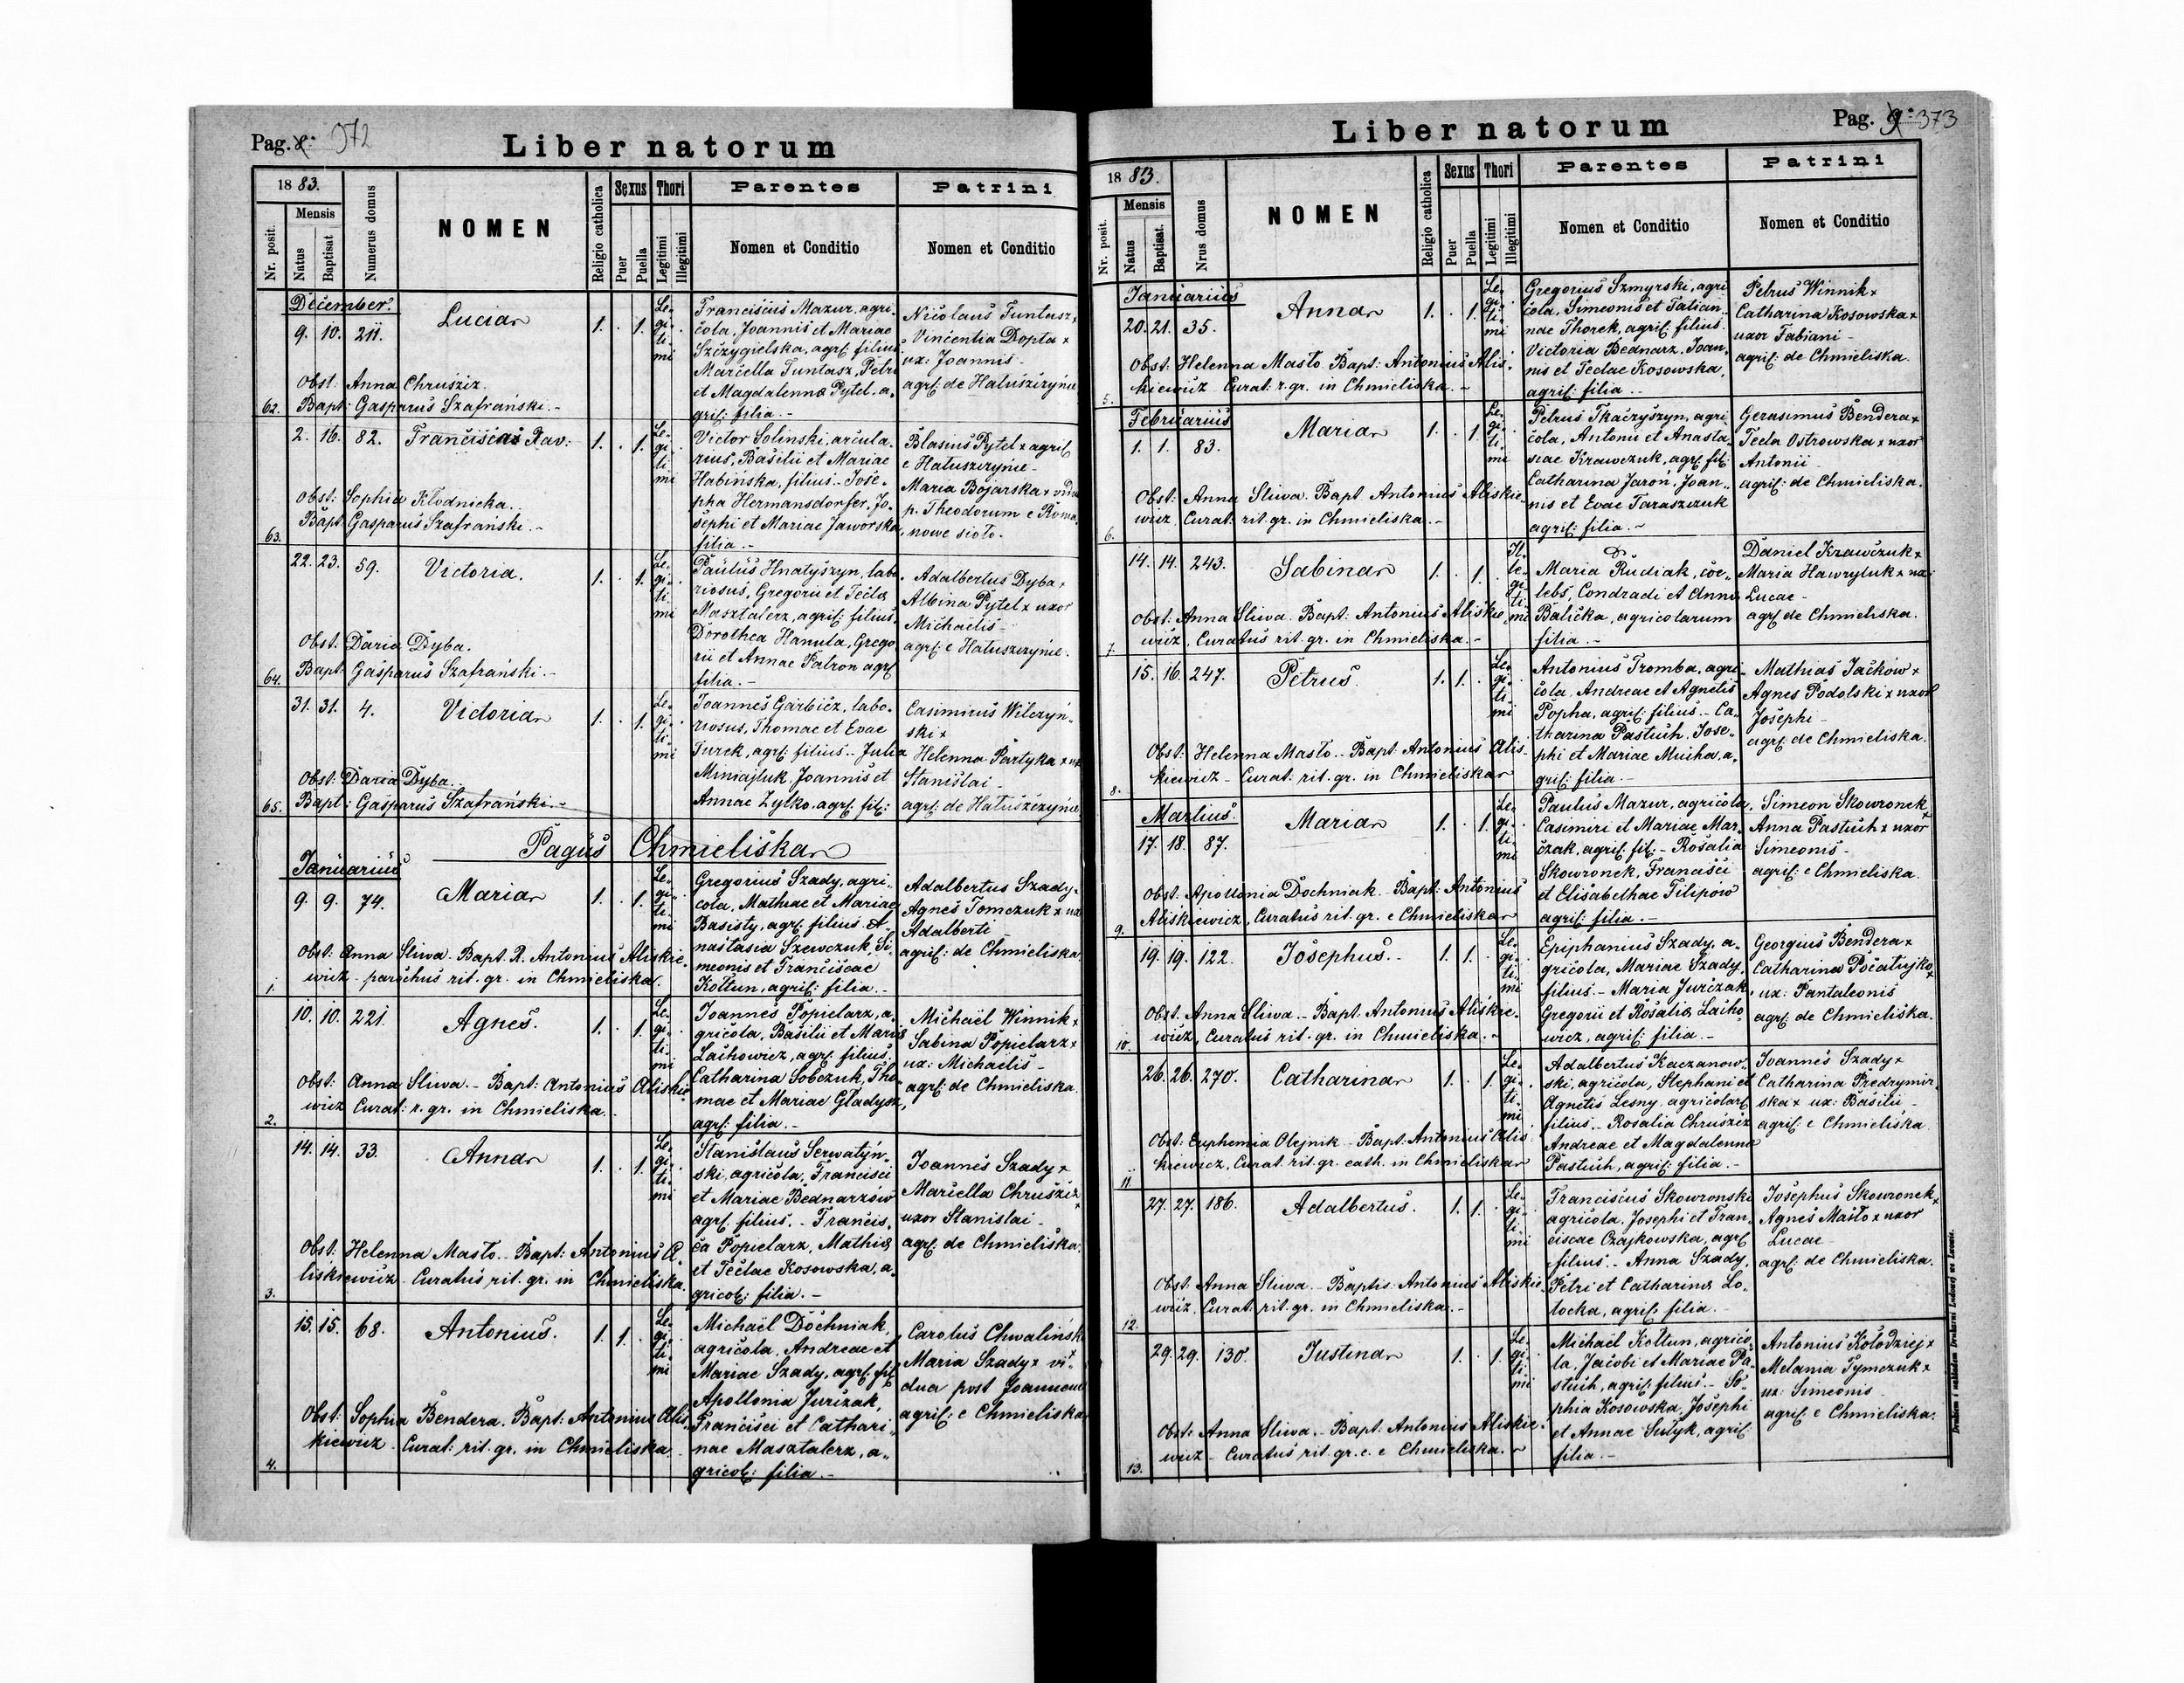 Pag. 8. 972
Liber natorum
1883.
Nr. posit.
Mensis
Natus
Baptisat
Numerus domus
NOMEN
Religio catholica
Sexus
Puer
Puella
Thori
Legitimi
Illegitimi
Parentes
Nomen et Conditio
Patrini
Nomen et Conditio
December.
9. 10. 211. Lucia 1. . 1. Le-
gi-
ti-
mi
Franciscus Mazur, agri-
cola, Joannis et Mariae
Szczygielska, agrl. filius
Marcella Funtasz, Petri
et Magdalenna Pytel, a-
gril: filia.-
Nicolaus Funtasz x
Vincentia Dopta x
ux: Joannis-
agrl: de Hałuszczyńce
Obst: Anna Chruściz.
62. Bapt: Gasparus Szafrański.-
2. 16. 82. Francisca Xav: 1. . 1. Le-
gi-
ti-
mi
Victor Solinski, arcula-
rius, Basilii et Mariae
Habinska, filius.- Jose-
pha Hermansdorfer, Jo-
sephi et Mariae Jaworska
filia.-
Blasius Pytel x agril
e Hałuszczyńce-
Maria Bojarska x vidua
p. Theodorum e Roma-
nowe sioło.
Obst: Sophia Kłodnicka.
63. Bapt: Gasparus Szafrański.-
22. 23. 59. Victoria. 1. . 1. Le-
gi-
ti-
mi
Paulus Hnatyszyn, labo-
riosus, Gregorii et Tecla
Masztalerz, agril: filius,
Dorothea Hanula, Grego-
rii et Annae Patron agrl
filia.-
Adalbertus Dyba x
Albina Pytel x uxor
Michaelis-
agrl: e Hałuszczyńce.
Obst: Daria Dyba.
64. Bapt: Gasparus Szafrański.-
31. 31. 4. Victoria 1. . 1. Le-
gi-
ti-
mi
Joannes Garbicz, labo-
riosus, Thomae et Evae
Turek, agrl: filius.- Julia
Miniajluk, Joannis et
Annae Zylko, agrl: fil:
Casimirus Wilczyń-
ski x
Helenna Partyka x ux
Stanislai-
agrl: de Hałuszczyńce
Obst: Daria Dyba.
65. Bapt: Gasparus Szafrański.-
Pagus Chmieliska
Januarius
9. 9. 74. Maria 1. . 1. Le-
gi-
ti-
mi
Gregorius Szady, agri-
cola, Mathiae et Mariae
Basisty, agrl: filius. A-
nastasia Szewczuk, Si-
meonis et Franciscae
Kołtun, agril: filia.-
Adalbertus Szady x
Agnes Tomczuk x ux
Adalberti-
agril: de Chmieliska
Obst: Anna Sliwa. Bapt. R. Antonius Aliskie-
1. wicz - parochus rit. gr. in Chmieliska.
10. 10. 221. Agnes. 1. . 1. Le-
gi-
ti-
mi
Joannes Popielarz, a-
gricola, Basilii et Maria
Lachowicz, agrl: filius.
Catharina Sobczuk, Tho-
mae et Mariae Gladysz,
agrl: filia.-
Michaël Winnik x
Sabina Popielarz x
ux: Michaelis-
agrl: de Chmieliska.
Obst: Anna Sliwa.- Bapt: Antonius Aliskie-
2. wicz Curat: r. gr. in Chmieliska.
14. 14. 33. Anna 1. . 1. Le-
gi-
ti-
mi
Stanislaus Serwatyn-
ski, agricola, Francisci
et Mariae Bednarzów
agrl. filius.- Francis-
ca Popielarz, Mathia
et Teclae Kosowska, a-
gricol: filia.-
Joannes Szady x
Mariella Chruściz
x
uxor Stanislai-
agrl: de Chmieliska.
Obst: Helenna Masło.- Bapt: Antonius A-
3. liskiewicz - Curatus rit. gr. in Chmieliska.
15. 15. 68. Antonius. 1. 1. . Le-
gi-
ti-
mi
Michaël Dochniak,
agricola, Andreae et
Mariae Szady, agrl: fil
Apollonia Jurczak,
Francisci et Cathari-
nae Masztalerz, a-
gricol: filia.-
Carolus Chwalińsk
x
Maria Szady x vi-
dua post Joannem
agril: e Chmieliska
Obst: Sophia Bendera. Bapt: Antonius Alis-
4. kiewicz - Curat: rit. gr. in Chmieliska.
Pag. 9. 373
Liber natorum
1883.
Nr. posit.
Mensis
Natus
Baptisat.
Nrus domus
NOMEN
Religio catholica
Sexus
Puer
Puella
Thori
Legitimi
Illegitimi
Parentes
Nomen et Conditio
Patrini
Nomen et Conditio
Januarius
20. 21. 35. Anna 1. . 1. Le-
gi-
ti-
mi
Gregorius Szmyrski, agri
cola, Simeonis et Tatian-
nae Thorek, agril: filius.
Victoria Bednarz, Joan-
nis et Teclae Kosowska,
agril: filia.-
Petrus Winnik x
Catharina Kosowska x
uxor Fabiani-
agril: de Chmieliska.
Obst: Helenna Masło. Bapt: Antonius Alis-
5. kiewicz Curat: r. gr. in Chmieliska.-
Februarius
1. 1. 83. Maria 1. . 1. Le-
gi-
ti-
mi
Petrus Tkaczyszyn, agri
cola, Antonii et Anasta-
siae Krawczuk, agrl: fil:
Catharina Jaroń, Joan-
nis et Evae Taraszczuk
agril: filia.-
Gerasimus Bendera x
Tecla Ostrowska x uxor
Antonii-
agril: de Chmieliska.
Obst: Anna Sliwa. Bapt: Antonius Aliskie-
6. wicz, Curat: rit. gr. in Chmieliska.-
14. 14. 243. Sabina 1. . 1. . Il-
le-
gi-
ti-
mi
Maria Rudiak, coe-
lebs, Condradi et Anna
Balicka, agricolarum
filia.-
Daniel Krawczuk x
Maria Hawryluk x uxi
Lucae-
agrl de Chmieliska.
Obst: Anna Sliwa. Bapt: Antonius Aliskie-
7. wicz, Curatus rit. gr. in Chmieliska.-
15. 16. 247. Petrus. 1. 1. . Le-
gi-
ti-
mi
Antonius Tromba, agri-
cola, Andreae et Agnetis
Popha, agril: filius.- Ca-
tharina Pastuch, Jose-
phi et Mariae Mucha, a-
gril: filia.-
Mathias Jacków x
Agnes Podolski x uxor
Josephi-
agrl: de Chmieliska.
Obst: Helenna Masło.- Bapt: Antonius Alis-
8. kiewicz - Curat: rit. gr. in Chmieliska
Martius.
17. 18. 87. Maria 1. . 1. Le-
gi-
ti-
mi
Paulus Mazur, agricola,
Casimiri et Mariae Mar-
czak, agril: fil:- Rosalia
Skowronek, Francisci
et Elisabethae Filipów
agril: filia.-
Simeon Skowronek
x
Anna Pastuch x uxor
Simeonis-
agril: e Chmieliska.
Obst: Apollonia Dochniak.- Bapt: Antonius
9. Aliskiewicz, Curatus rit. gr. e Chmieliska
19. 19. 122. Josephus.- 1. 1. . Le-
gi-
ti-
mi
Epiphanius Szady, a-
gricola, Mariae Szady,
filius.- Maria Jurczak,
Gregorii et Rosalia Lacho-
wicz, agril: filia.-
Georgius Bendera x
Catharina Pocałujko
x
ux: Pantaleonis
agrl: de Chmieliska.
Obst: Anna Sliwa.- Bapt. Antonius Aliskie-
10. wicz, Curatus rit. gr. in Chmieliska.-
26. 26. 270. Catharina 1. . 1. Le-
gi-
ti-
mi
Adalbertus Kaczanow-
ski, agricola, Stephani et
Agnetis Lesny, agricolarl
filius.- Rosalia Chruściz
Andreae et Magdalenna
Pastuch, agril: filia.-
Joannes Szady x
Catharina Predrymir-
ska x ux: Basilii-
agril: e Chmieliska.
Obst: Euphemia Olejnik.- Bapt: Antonius Alis-
11. kiewicz, Curat. rit. gr. cath. in Chmieliska
27. 27. 186. Adalbertus. 1. 1. . Le-
gi-
ti-
mi
Franciscus Skowronski
agricola, Josephi et Fran-
ciscae Czajkowska, agrl
filius.- Anna Szady,
Petri et Catharina Lo-
tocka, agril: filia.-
Josephus Skowronek x
Agnes Masło x uxor
Lucae-
agrl: de Chmieliska.
Obst: Anna Sliwa.- Baptis. Antonius Aliskie-
12. wicz, Curat: rit. gr. in Chmieliska.-
29. 29. 130. Justina 1. . 1. Le-
gi-
ti-
mi
Michaël Kołtun, agrico-
la, Jacobi et Mariae Pa-
stuch, agril: filius.- So-
phia Kosowska, Josephi
et Annae Sułyk, agril:
filia.-
Antonius Kołodziej x
Melania Tymczuk x
ux: Simeonis-
agril: e Chmieliska.
Obst: Anna Sliwa.- Bapt: Antonius Aliskie-
13. wicz - Curatus rit. gr. c. e Chmieliska.-
Drukiem i nakładem Drukarni Ludowej we Lwowie.